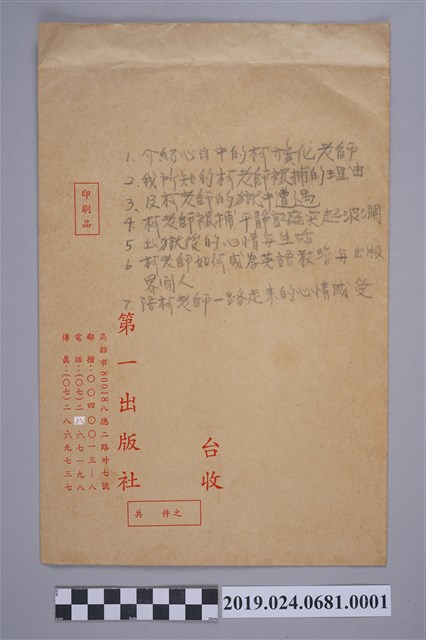 1. 介紹心目中的柯旗化老師
2. 我所知的柯老師被捕的理由
3. 及柯老師的獄中遭遇
4. 柯老師被捕平靜家庭突起波瀾
5 出獄後的心情與生活
6 柯老師如何成為英語教學与出版
界聞人
7. 陪柯老師一路走來的心情感受
印刷品
第一出版社
高雄市80018八德二路卅七號
郵撥:〇〇四〇〇一三—八
電話:(〇七)二八六七一九八
傳真:(〇七)二八六九七三七
台收
共 件之
2019.024.0681.0001